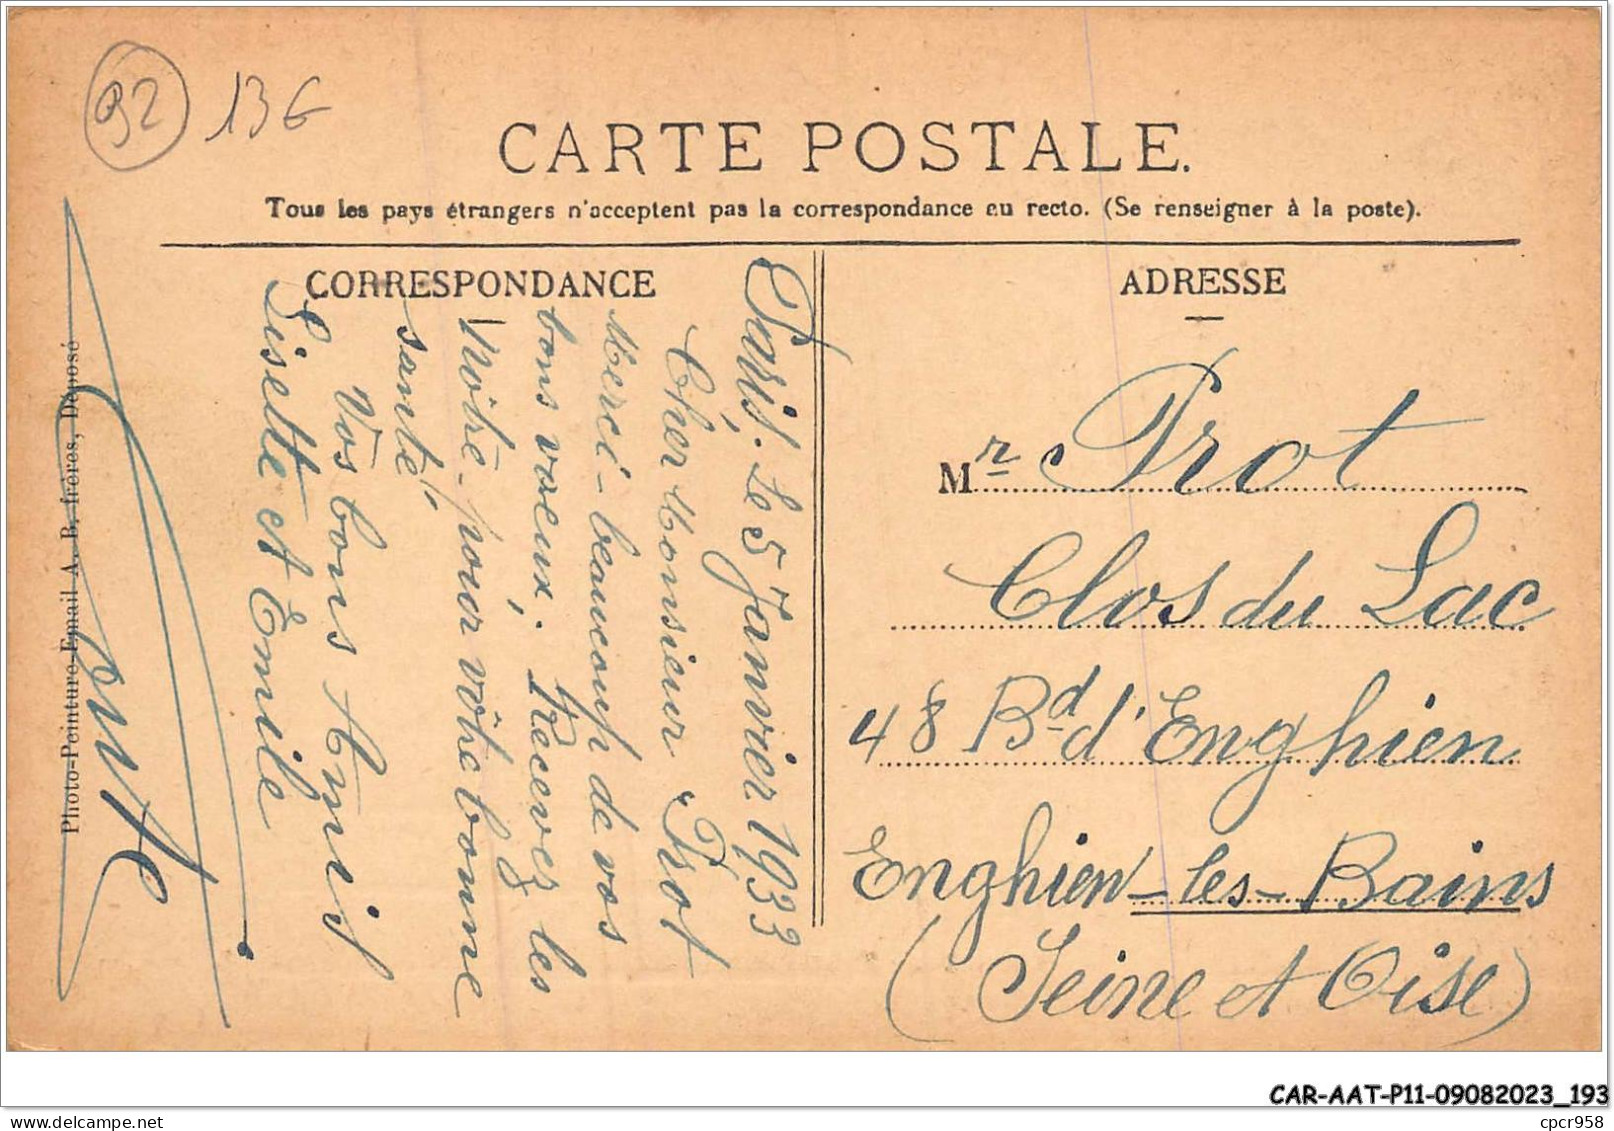 92 13€
CARTE POSTALE.
Tous les pays étrangers n'acceptent pas la correspondance au recto. (Se renseigner à la poste).
CORRESPONDANCE
Paris. Le 5 Janvier 1933
Cher Monsieur Prot
Merci - beaucoup de vos
bons vœux. Recevez les
nôtre - pour vôtre bonne
santé.
Vos bons Amis
Lisette et Emile
ADRESSE
Mr Prot
Clos du Lac
48 Bd d'Enghien
Enghien-les-Bains
(Seine et Oise)
Photo-Peinture-Email A. B. frères, Déposé
CAR-AAT-P11-09082023_193
cpcr958